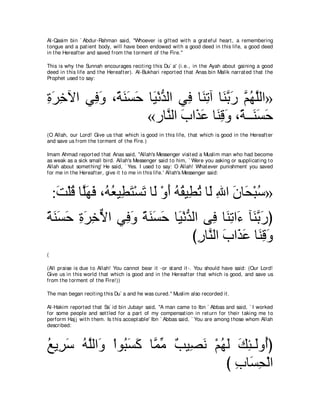 Al-Qasim bin `Abdur-Rahman said, "Whoever is gifted with a grateful heart, a remembering
tongue and a patient body, will have been endowed with a good deed in this life, a good deed
in the Hereafter and saved from the torment of the Fire.''
This is why the Sunnah encourages reciting this Du`a' (i.e., in the Ayah about gaining a good
deed in this life and the Hereafter). Al-Bukhari reported that Anas bin Malik narrated that the
Prophet used to say:
«اللَّهُمَّ رَبَّنَا آتِنَا فِي الدُّنْيَا حَسَنَةً، وَفِي الْآخِرَةِ
حَسَنَــةً، وَقِنَا عَذَابَ النَّار»
(O Allah, our Lord! Give us that which is good in this life, that which is good in the Hereafter
and save us from the torment of the Fire.)
Imam Ahmad reported that Anas said, "Allah's Messenger visited a Muslim man who had become
as weak as a sick small bird. Allah's Messenger said to him, `Were you asking or supplicating to
Allah about something' He said, `Yes. I used to say: O Allah! Whatever punishment you saved
for me in the Hereafter, give it to me in this life.' Allah's Messenger said:
«سُبْحَانَ اللهِ لَا تُطِيقُهُ أَوْ لَا تَسْتَطِيعُهُ، فَهَلَّا قُلْتَ:
(رَبَّنَآ ءَاتِنَا فِى الدُّنْيَا حَسَنَةً وَفِي الأٌّخِرَةِ حَسَنَةً
وَقِنَا عَذَابَ النَّارِ)
(
(All praise is due to Allah! You cannot bear it -or stand it-. You should have said: (Our Lord!
Give us in this world that which is good and in the Hereafter that which is good, and save us
from the torment of the Fire!))
The man began reciting this Du`a and he was cured.'' Muslim also recorded it.
Al-Hakim reported that Sa`id bin Jubayr said, "A man came to Ibn `Abbas and said, `I worked
for some people and settled for a part of my compensation in return for their taking me to
perform Hajj with them. Is this acceptable' Ibn `Abbas said, `You are among those whom Allah
described:
(أُولَـئِكَ لَهُمْ نَصِيبٌ مِّمَّا كَسَبُواْ وَاللَّهُ سَرِيعُ
الْحِسَابِ )